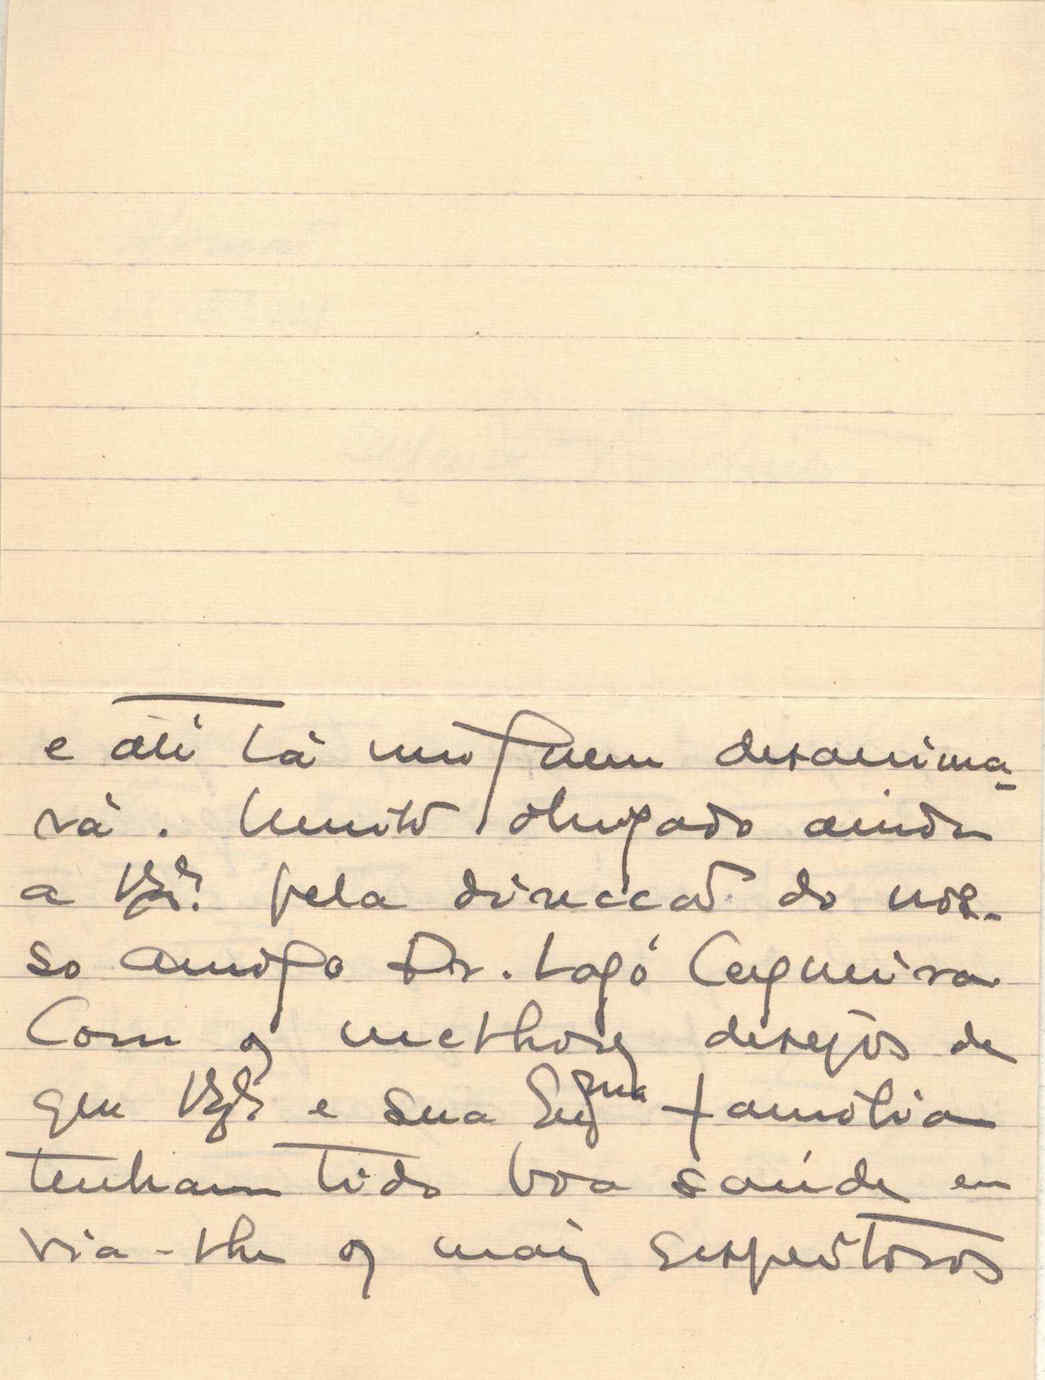 e até lá ninguem desanima-
rá. Muito obrigado ainda
a V. Ex.ª pela direcção do nos-
so amigo Dr. Lago Cerqueira
Com os melhores desejos de
que V. Ex.ª e sua Exma familia
tenham tido boa saúde en
via-lhe os mais respeitosos